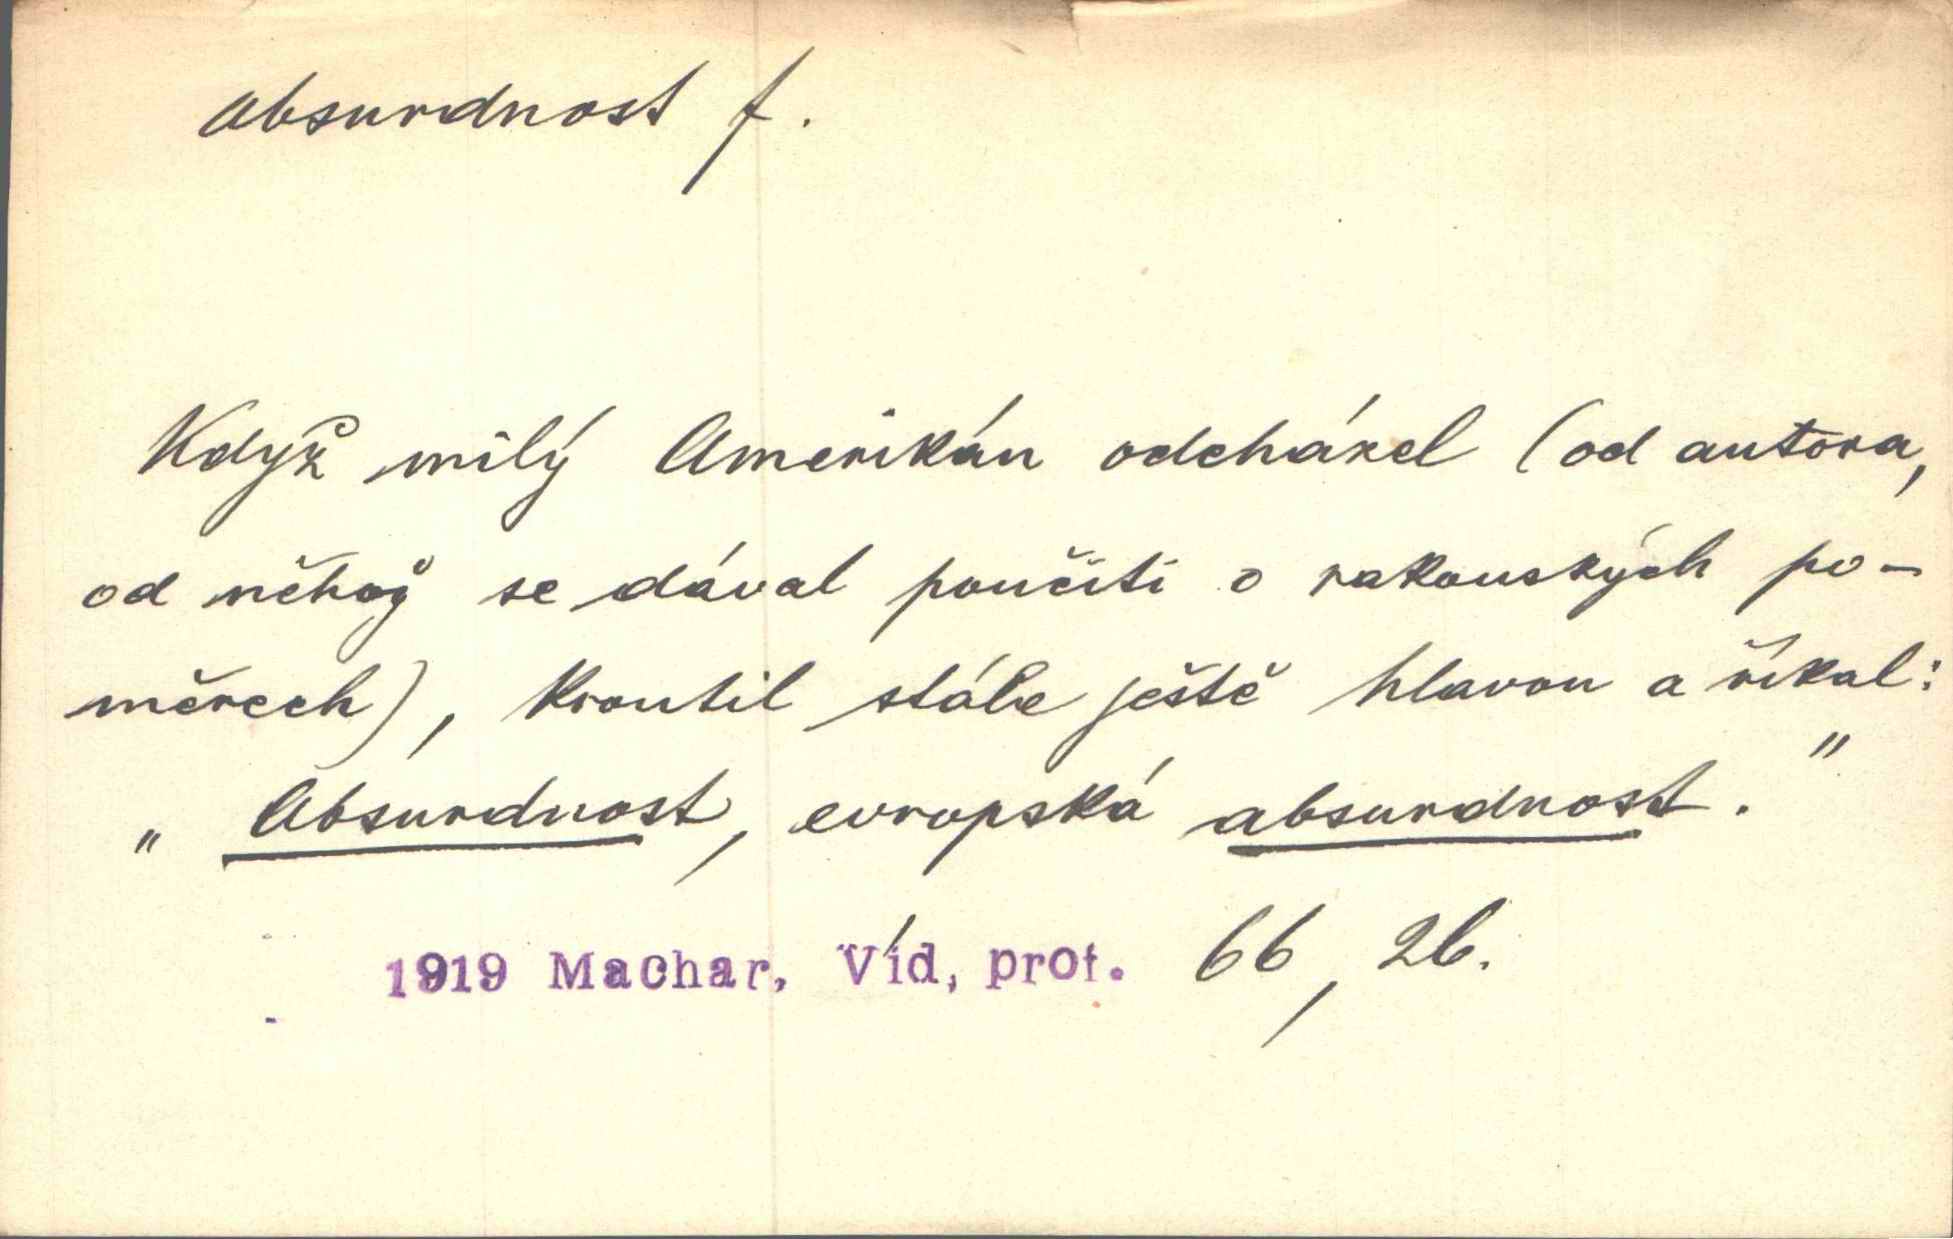 absurdnost f.
Když milý Amerikán odcházel (od autora,
od něhož se dával poučiti o rakouských po-
měrech), kroutil stále ještě hlavou a říkal:
„Absurdnost, evropská absurdnost."
1919 Machar, Víd, prof. 66, 26.